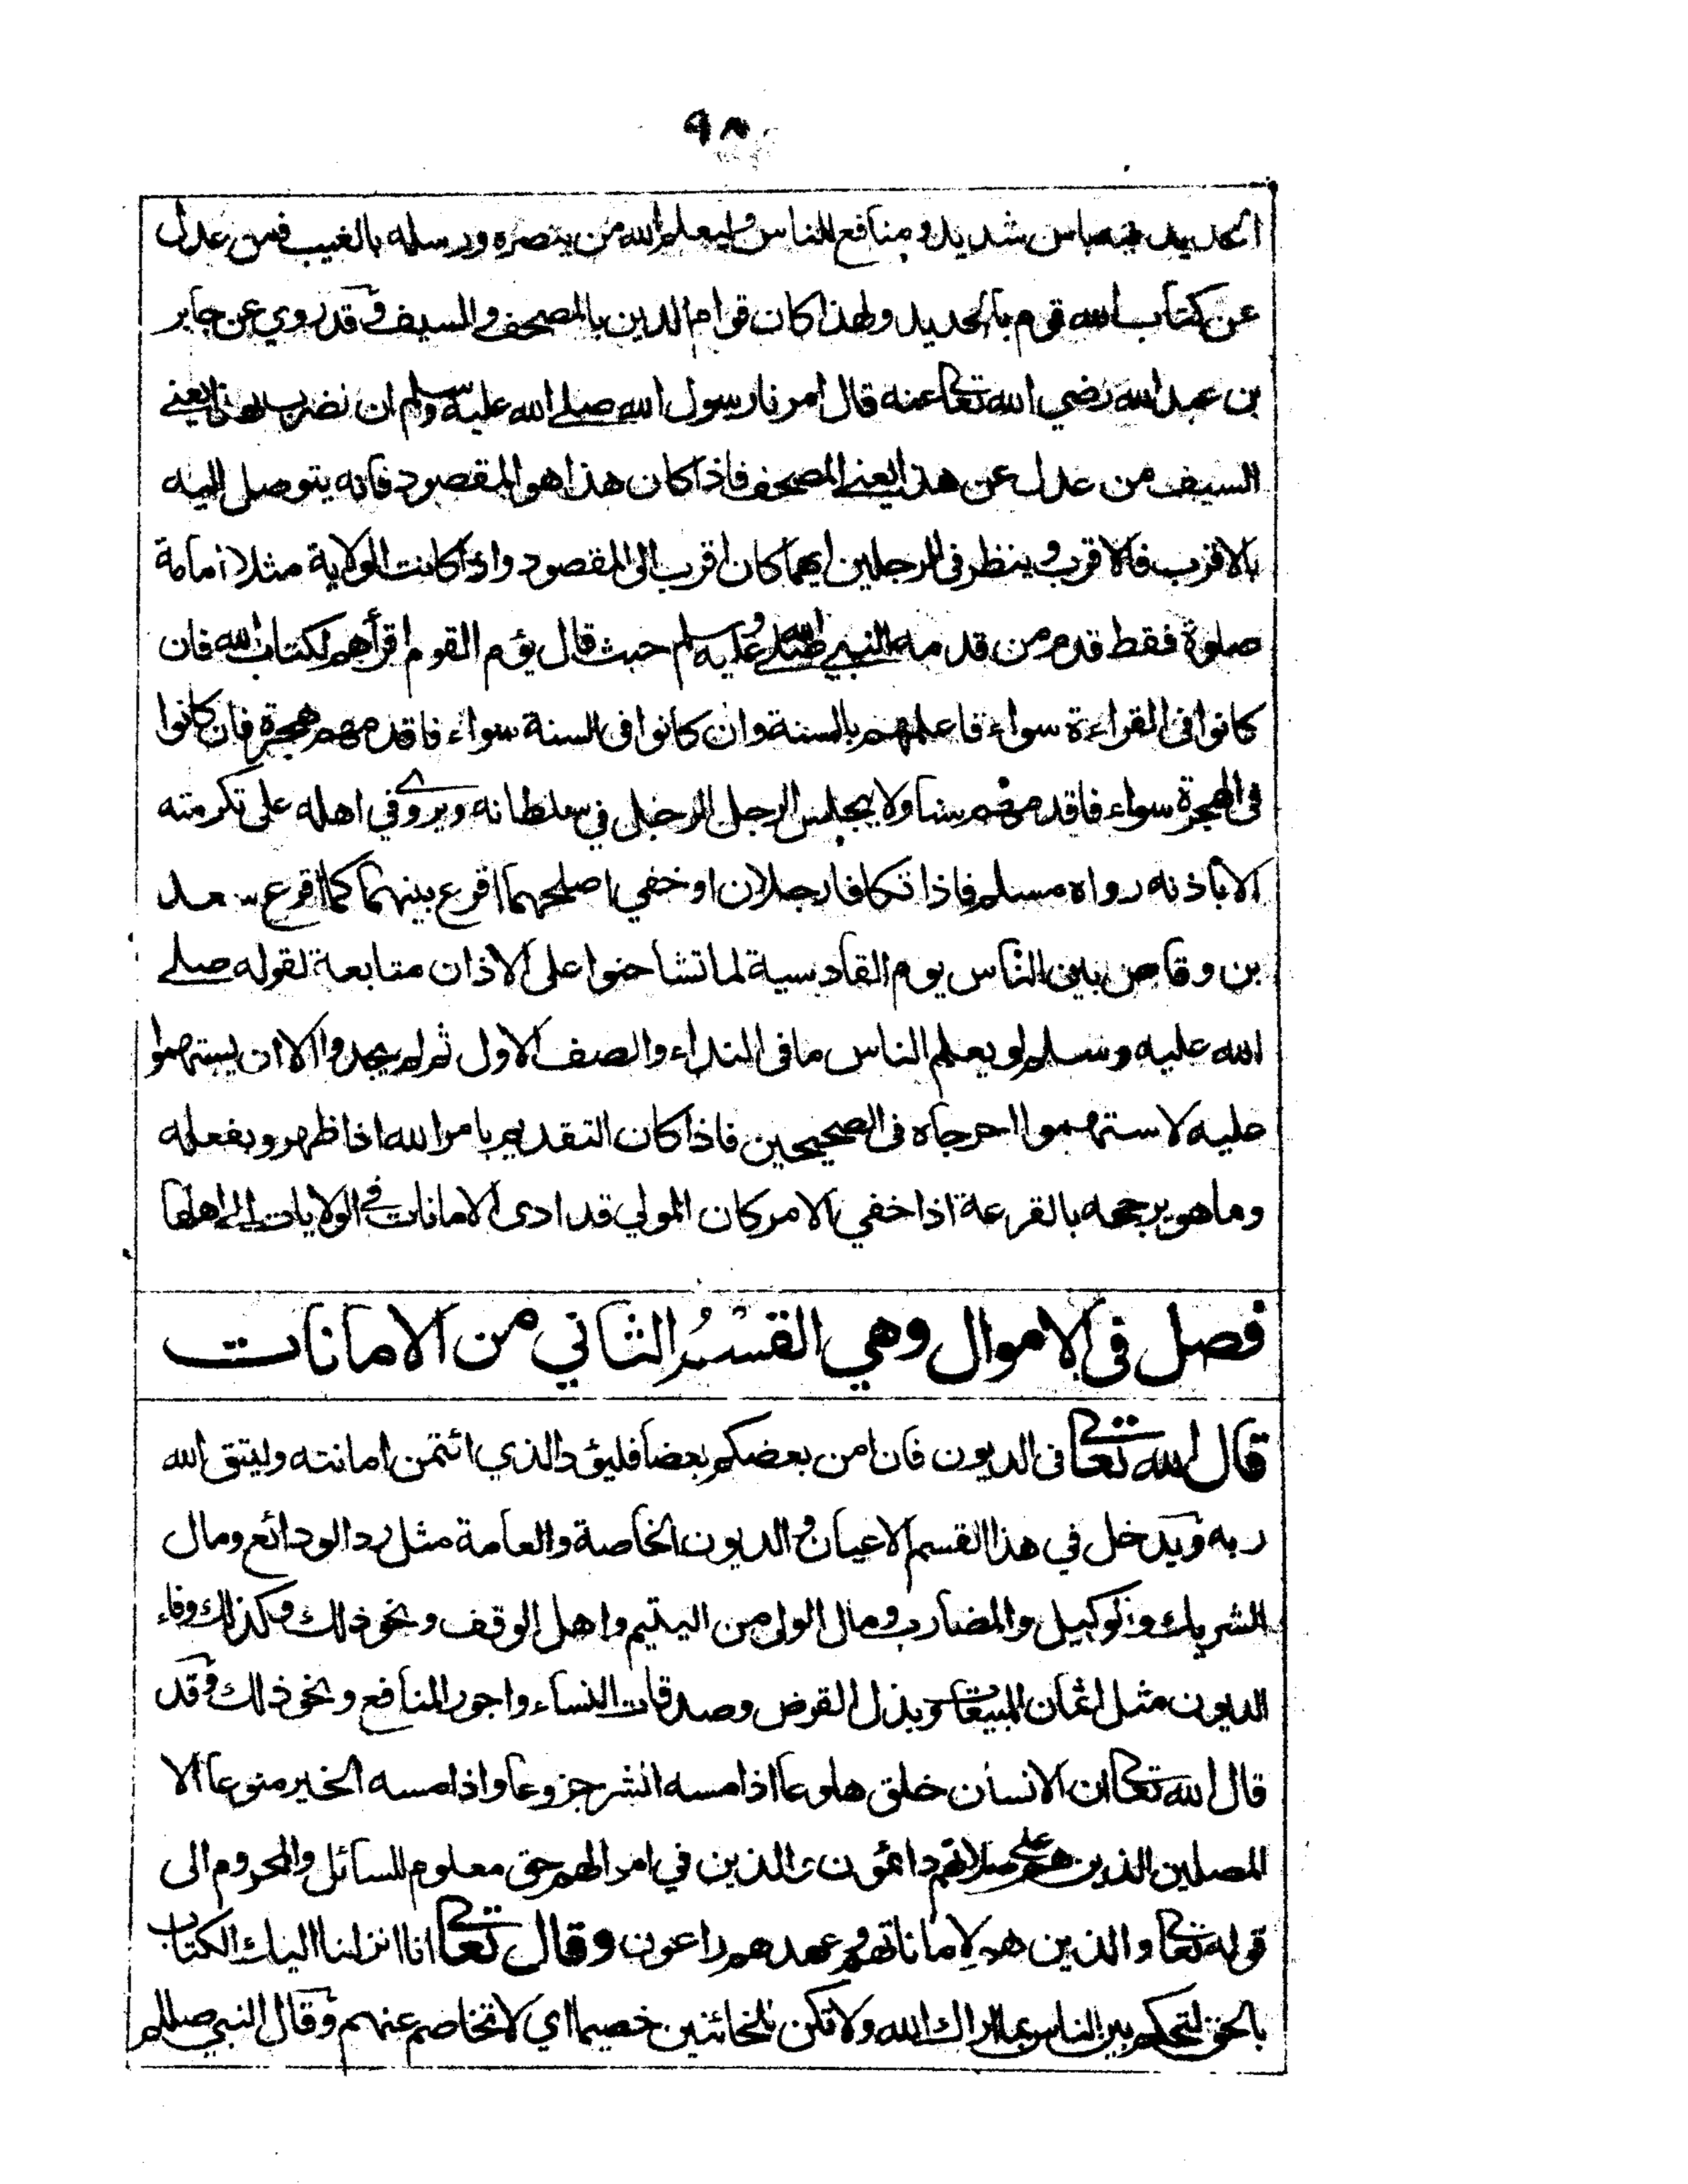 ٩٨
الحديد فيه باس شديد ومنافع للناس وليعلم الله من ينصره ورسله بالغيب فمن عدل
عن كتاب الله قوم بالحديد ولهذا كان قوام الدين بالمصحف والسيف وقد روي عن جابر
بن عبد الله رضي الله تعا عنه قال امرنا رسول الله صلى الله عليه وسلم ان نضرب بهذا يعني
السيف من عدل عن هذا يعني المصحف فاذا كان هذا هو المقصود فانه يتوصل اليه
بالاقرب فالاقرب وينظر في الرجلين ايهما كان اقرب الى المقصود واذا كانت الولاية مثلا امامة
صلوة فقط قدم من قدمه النبي صلى الله عليه وسلم حيث قال يؤم القوم اقرأهم لكتاب الله فان
كانوا في القراءة سواء فاعلمهم بالسنة وان كانوا في السنة سواء فاقدمهم هجرة فان كانوا
في الهجرة سواء فاقدمهم سنا ولا يجلس الرجل الرجل في سلطانه ويروى في اهله على تكرمته
الا باذنه رواه مسلم فاذا تكافا رجلان او خفي اصلحهما اقرع بينهما كما اقرع سعد
بن وقاص بين الناس يوم القادسية لما تشاحنوا على الاذان متابعة لقوله صلى
الله عليه وسلم لو يعلم الناس ما في النداء والصف الاول ثم لم يجدوا الا ان يستهموا
عليه لاستهموا اخرجاه في الصحيحين فاذا كان التقديم بامر الله اذا ظهر وبفعله
وما هو يرجحه بالقرعة اذا خفي الامر كان المولي قد ادى الامانات في الولايات الى اهلها
فصل في الاموال وهي القسم الثاني من الامانات
قال الله تعا في الديون فان امن بعضكم بعضا فليؤد الذي ائتمن امانته وليتق الله
ربه ويدخل في هذا القسم الاعيان والديون الخاصة والعامة مثل رد الودائع ومال
الشريك والوكيل والمضارب ومال الولي من اليتيم واهل الوقف ونحو ذلك وكذلك وفاء
الديون مثل اثمان المبيعات وبذل القرض وصدقات النساء واجور المنافع ونحو ذلك وقد
قال الله تعا ان الانسان خلق هلوعا اذا مسه الشر جزوعا واذا مسه الخير منوعا الا
المصلين الذين هم على صلاتهم دائمون والذين في اموالهم حق معلوم للسائل والمحروم الى
قوله تعا والذين هم لاماناتهم وعهدهم راعون وقال تعا انا انزلنا اليك الكتاب
بالحق لتحكم بين الناس بما اراك الله ولا تكن للخائنين خصيما اي لا تخاصم عنهم وقال النبي صللم